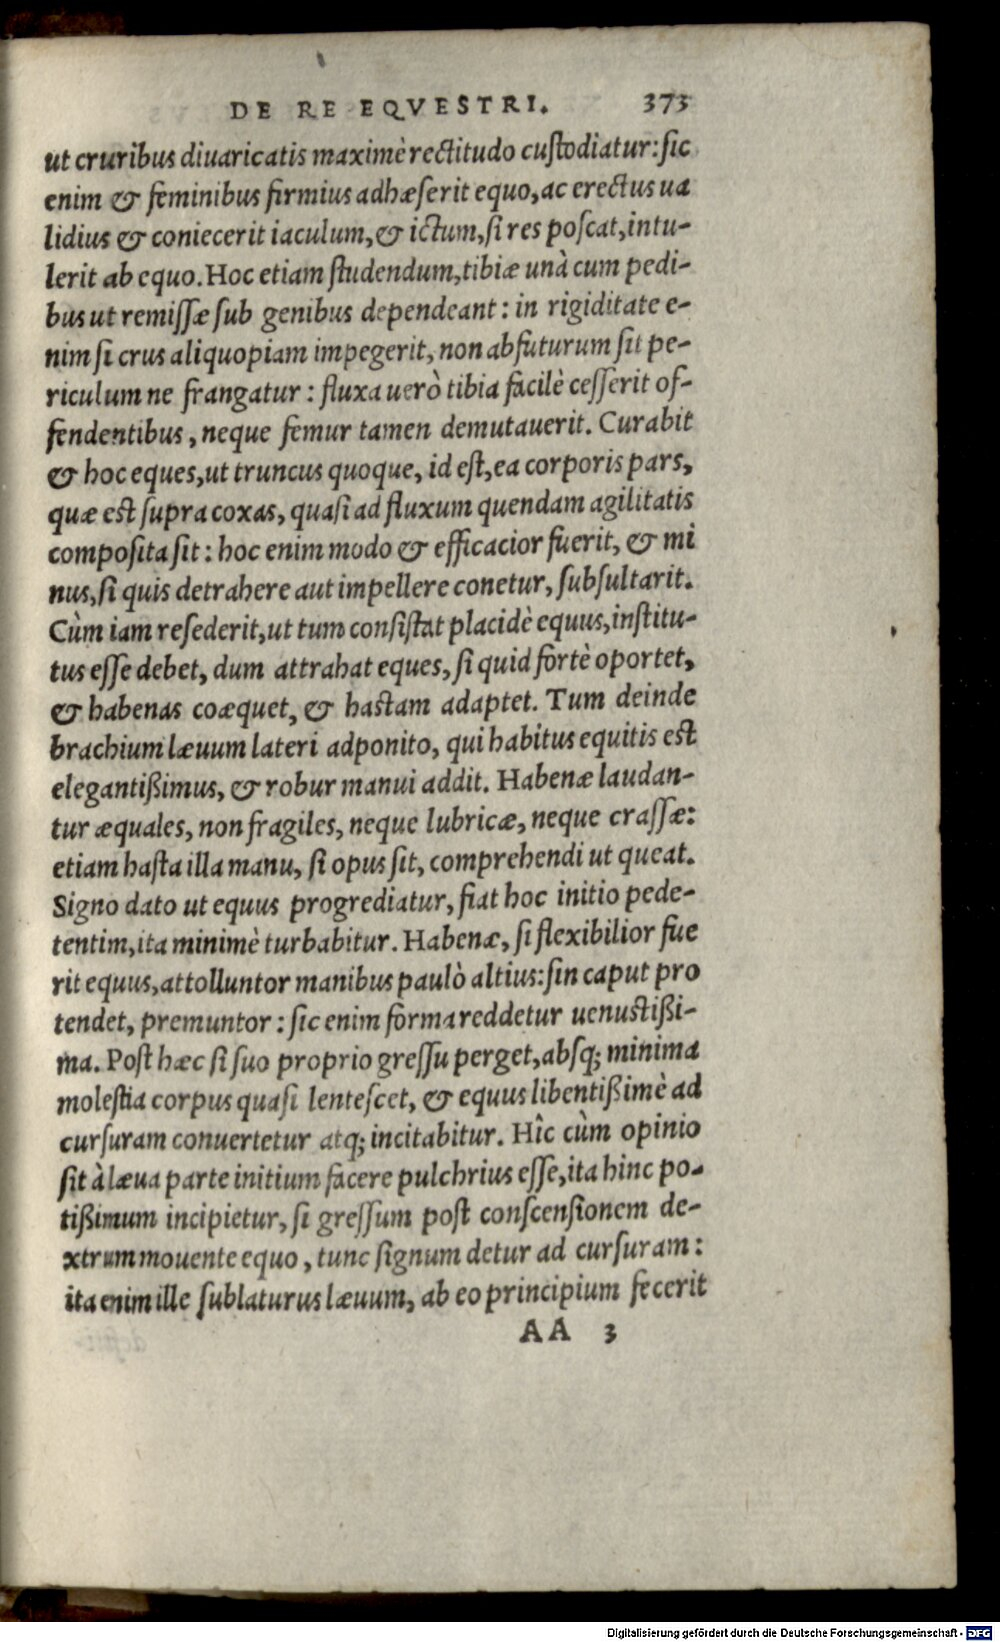 DE RE EQVESTRI. 373
ut cruribus diuaricatis maximè rectitudo custodiatur: sic
enim & feminibus firmius adhæserit equo, ac erectus ua
lidius & coniecerit iaculum, & ictum, si res poscat, intu-
lerit ab equo. Hoc etiam studendum, tibiæ unà cum pedi-
bus ut remissæ sub genibus dependeant: in rigiditate e-
nim si crus aliquopiam impegerit, non abfuturum sit pe-
riculum ne frangatur: fluxa uerò tibia facilè cesserit of-
fendentibus, neque femur tamen demutauerit. Curabit
& hoc eques, ut truncus quoque, id est, ea corporis pars,
quæ est supra coxas, quasi ad fluxum quendam agilitatis
composita sit: hoc enim modo & efficacior fuerit, & mi
nus, si quis detrahere aut impellere conetur, subsultarit.
Cùm iam resederit, ut tum consistat placidè equus, institu-
tus esse debet, dum attrahat eques, si quid fortè oportet,
& habenas coæquet, & hastam adaptet. Tum deinde
brachium læuum lateri adponito, qui habitus equitis est
elegantißimus, & robur manui addit. Habenæ laudan-
tur æquales, non fragiles, neque lubricæ, neque crassæ:
etiam hasta illa manu, si opus sit, comprehendi ut queat.
Signo dato ut equus progrediatur, fiat hoc initio pede-
tentim, ita minimè turbabitur. Habenæ, si flexibilior fue
rit equus, attolluntor manibus paulò altius: sin caput pro
tendet, premuntor: sic enim forma reddetur uenustißi-
ma. Post hæc si suo proprio gressu perget, absq; minima
molestia corpus quasi lentescet, & equus libentißimè ad
cursuram conuertetur atq; incitabitur. Hîc cùm opinio
sit à læua parte initium facere pulchrius esse, ita hinc po-
tißimum incipietur, si gressum post conscensionem de-
xtrum mouente equo, tunc signum detur ad cursuram:
ita enim ille sublaturus læuum, ab eo principium fecerit
AA 3
Digitalisierung gefördert durch die Deutsche Forschungsgemeinschaft - DFG